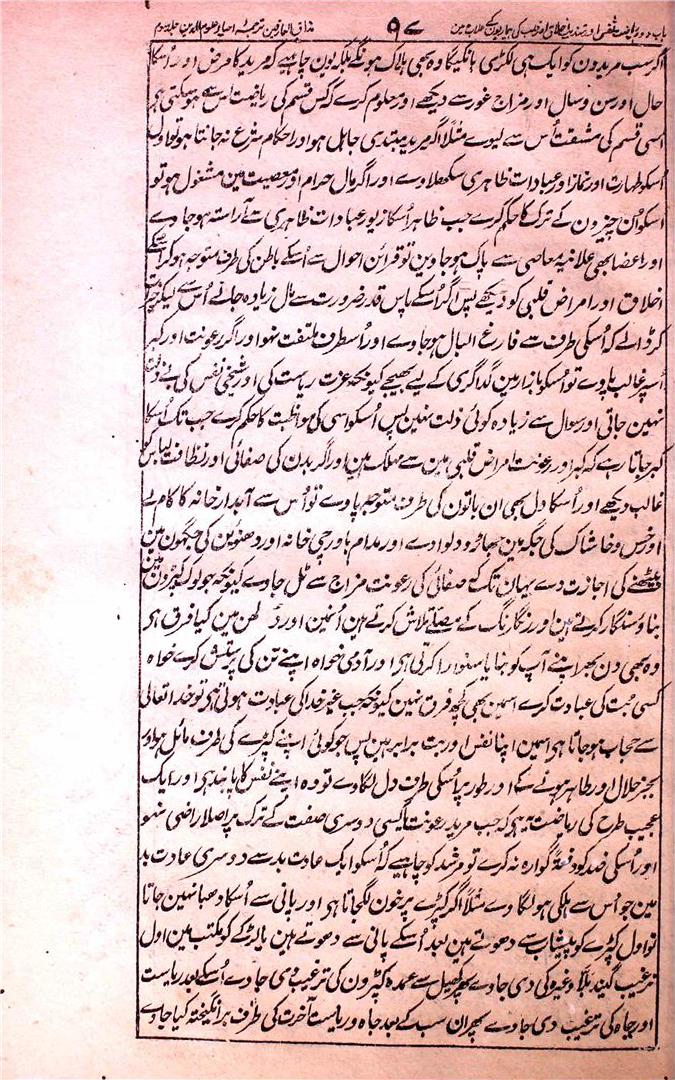 باب دوم ریاضت نفس اور تہذیب اخلاق اور قلب کی بیماریوں کے علاج مین ۹۷ مذاق العارفین ترجمہ احیاء علوم الدین جلد سوم
اگر سب مریدون کو ایک ہی لکڑی ہانکیگا وہ بھی ہلاک ہونگے بلکہ یون چاہیے کہ مرید کا مرض اور اُسکا
حال اور سن وسال اور مزاج غور سے دیکھے اور معلوم کرے کہ کس قسم کی ریاضت اس سے ہوسکتی ہی
اسی قسم کی مشقت اُس سے لیوے مثلاً اگر مرید مبتدی جاہل ہو اور احکام شرع نہ جانتا ہو تو اول
اُسکو طہارت اور نماز اور عبادات ظاہری سکھلاوے اور اگر مال حرام اور معصیت مین مشغول ہو تو
اسکو اُن چیزون کے ترک کا حکم کرے جب ظاہر اُسکا زیور عبادات ظاہری سے آراستہ ہوجاوے
اور اعضا بھی علانیہ معاصی سے پاک ہوجاوین تو قرائن احوال سے اُسکے باطن کی طرف متوجہ ہوکر اُسکے
اخلاق اور امراض قلبی کو دیکھے پس اگر اُسکے پاس قدر ضرورت سے مال زیادہ جانے اُس سے لیکر خیرات
کرڈالے کہ اُسکی طرف سے فارغ البال ہوجاوے اور اُسطرف ملتفت نہو اور اگر رعونت اور کبر
اُسپر غالب پاوے تو اُسکو بازار مین گداگری کے لیے بھیجے کیونکہ عزت ریاست کی اور شیخی نفس کی بے ذلت
نہین جاتی اور سوال سے زیادہ کوئی ذلت نہین پس اُسکو اسی کی مواظبت کا حکم کرے جب تک اُسکا
کبر جاتا رہے کہ کبر اور رعونت امراض قلبی مین سے مہلک ہین اور اگر بدن کی صفائی اور نظافت لباس کو
غالب دیکھے اور اُسکا دل بھی ان باتون کی طرف متوجہ پاوے تو اُس سے آبدار خانہ کا کام لے
اور خس وخاشاک کی جگہ مین جھاڑو دلوادے اور مدام باورچی خانہ اور دھنوین کی جگہون مین
بیٹھنے کی اجازت دے یہان تک کہ صفائی کی رعونت مزاج سے ٹل جاوے کیونکہ جو لوگ کپڑون مین
بناؤ سنگار کرتے ہین اور رنگا رنگ کے مصلے تلاش کرتے ہین اُنمین اور دُلھن مین کیا فرق ہی
وہ بھی دن بھر اپنے آپ کو بنایا سنوارا کرتی ہی اور آدمی خواہ اپنے تن کی پرستش کرے خواہ
کسی بت کی عبادت کرے اسمین بھی کچھ فرق نہین کیونکہ جب غیر خدا کی عبادت ہوئی تو خدا تعالی
سے حجاب ہوجاتا ہی اسمین اپنا نفس اور بت برابر ہین پس جو کوئی اپنے کپڑے کی طرف مائل ہو اور
بجز حلال اور طاہر ہونے کے اور طور پر اُسکی طرف دل لگاوے تو وہ اپنے نفس کا پابند ہی اور ایک
عجیب طرح کی ریاضت یہ ہی کہ جب مرید رعونت یا کسی دوسری صفت کے ترک پر اصلا راضی نہو
اور اُسکی ضد کو دفعۃً گوارہ نہ کرے تو مرشد کو چاہیے کہ اُسکو ایک عادت بد سے دوسری عادت بد
مین جو اُس سے ہلکی ہو لگاوے مثلاً اگر کپڑے پر خون لگجاتا ہی اور پانی سے اُسکا دھبا نہین جاتا
تو اول کپڑے کو پیشاب سے دھوتے ہین بعد اُسکے پانی سے دھوتے ہین یا لڑکے کو مکتب مین اول
ترغیب گیند بلّا وغیرہ کی دی جاوے پھر کھیل سے عمدہ کپڑون کی ترغیب دی جاوے اُسکے بعد ریاست
اور جاہ کی ترغیب دی جاوے پھر ان سب کے بعد جاہ وریاست آخرت کی طرف برانگیختہ کیا جاوے